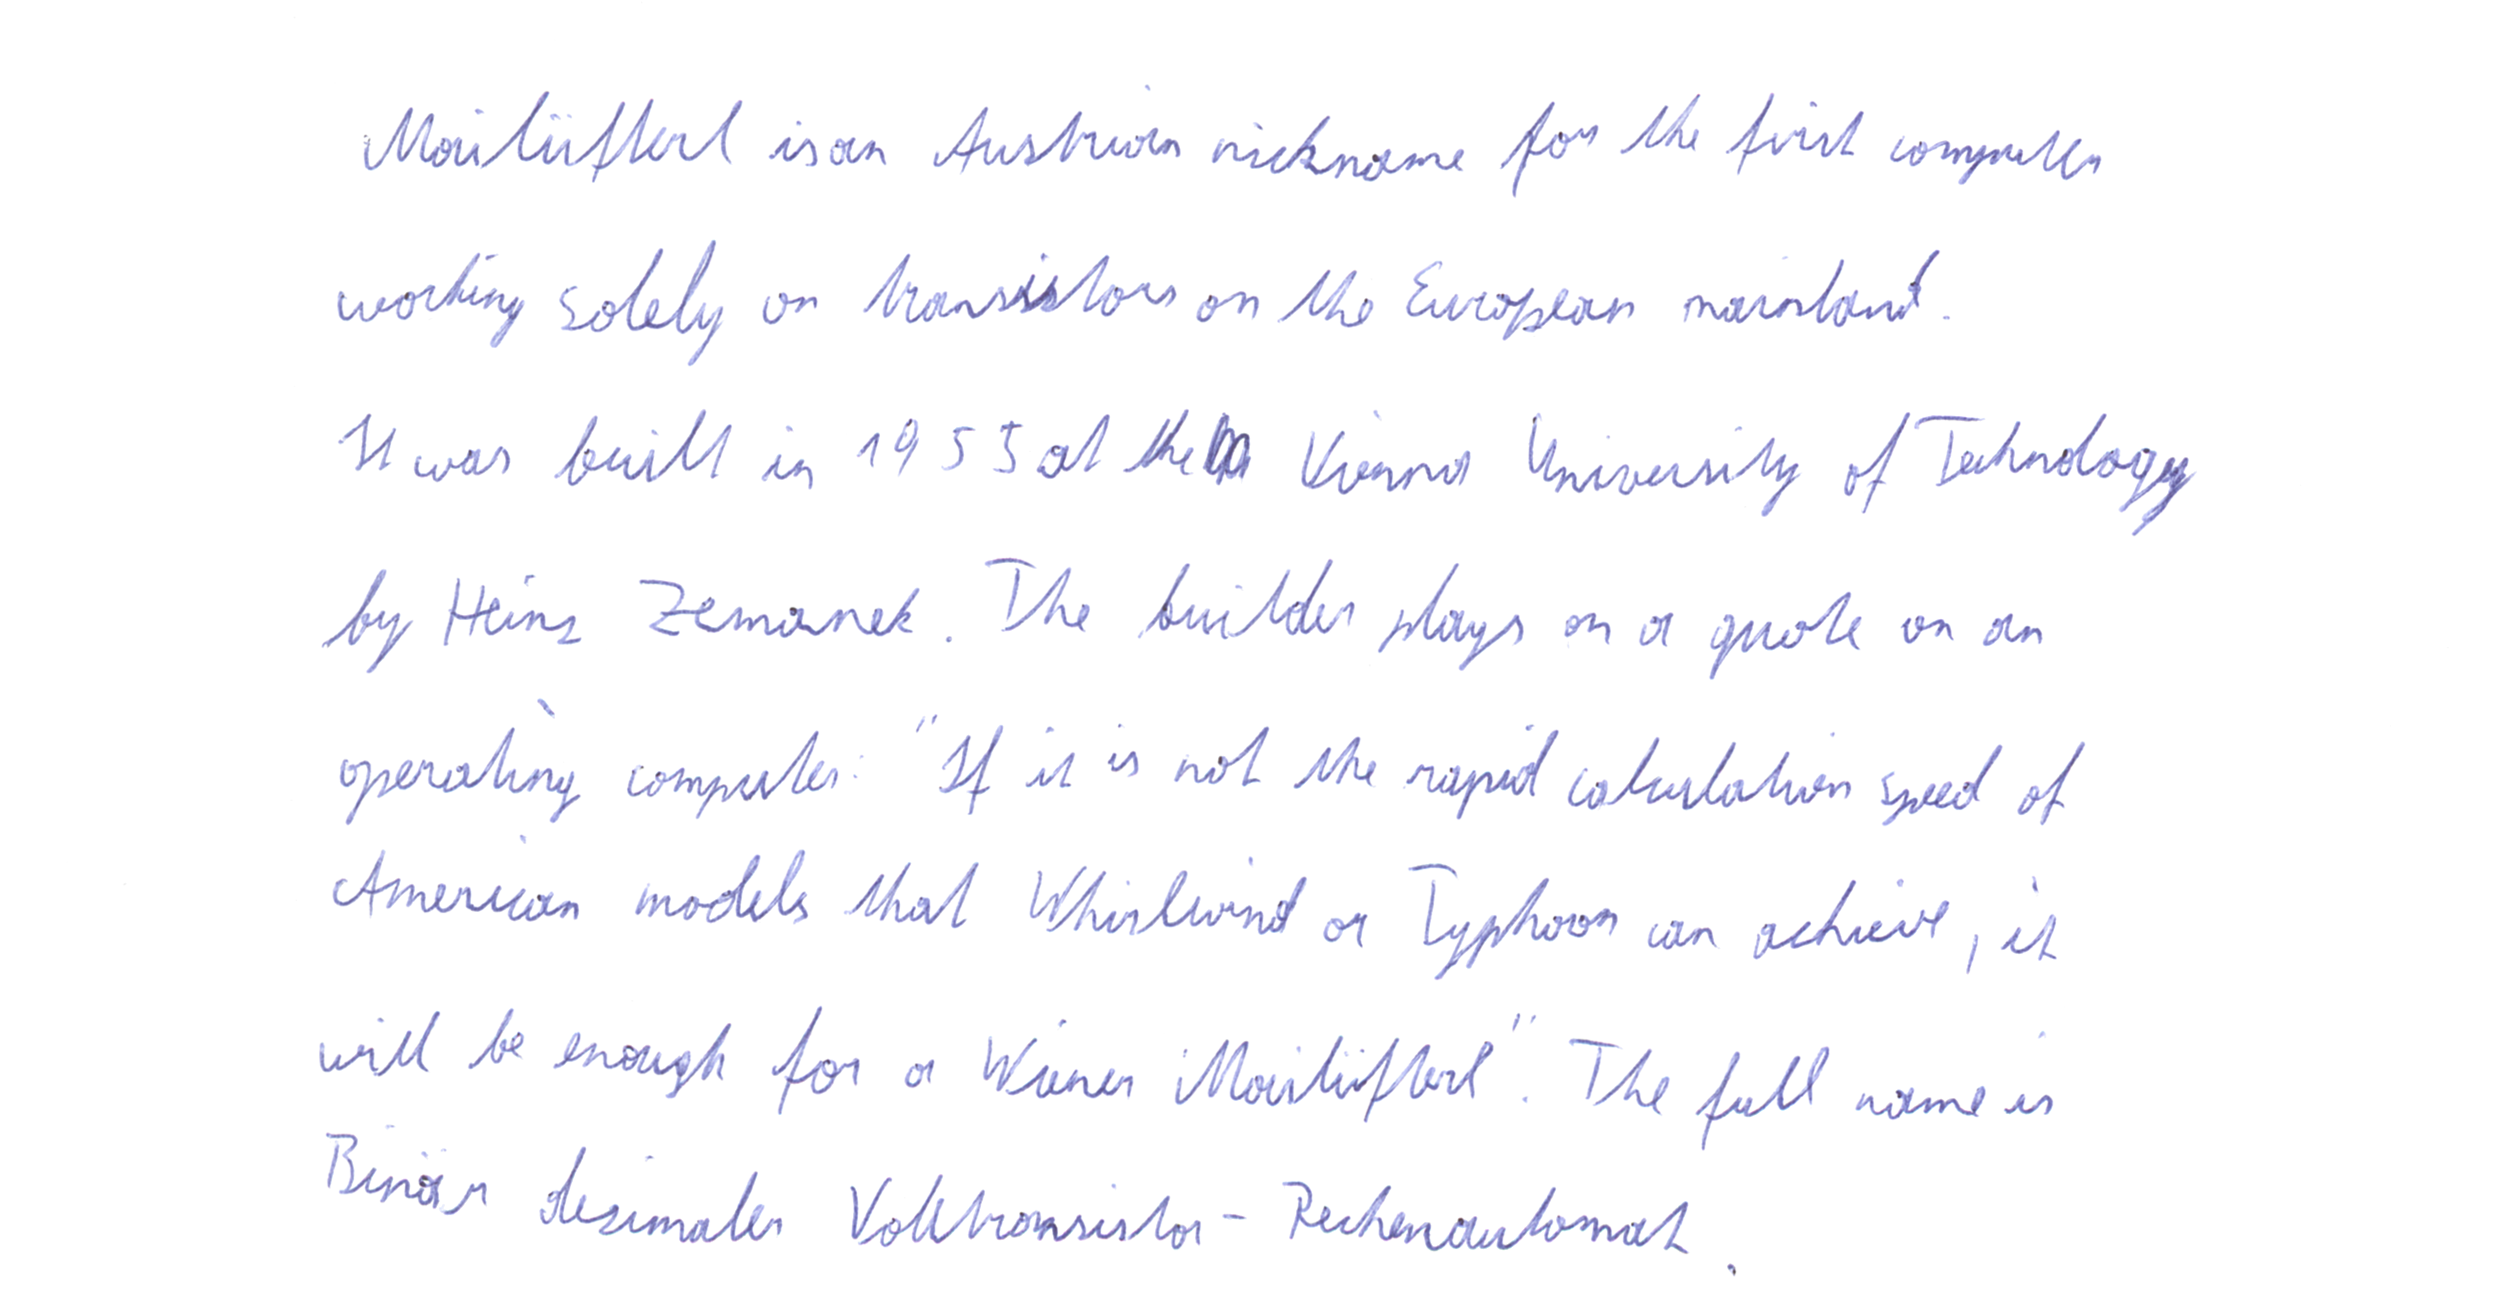 Mailüfterl is an Austrian nickname for the first computer
working solely on transistors on the European mainland.
It was built in 1955 at the Vienna University of Technology
by Heinz Zemanek. The builder plays on a quote on an
operating computer: "If it is not the rapid calculation speed of
American models that Whirlwind or Typhoon can achieve, it
will be enough for a Wiener Mailüfterl". The full name is
Binär dezimaler Volltransistor-Rechenautomat.